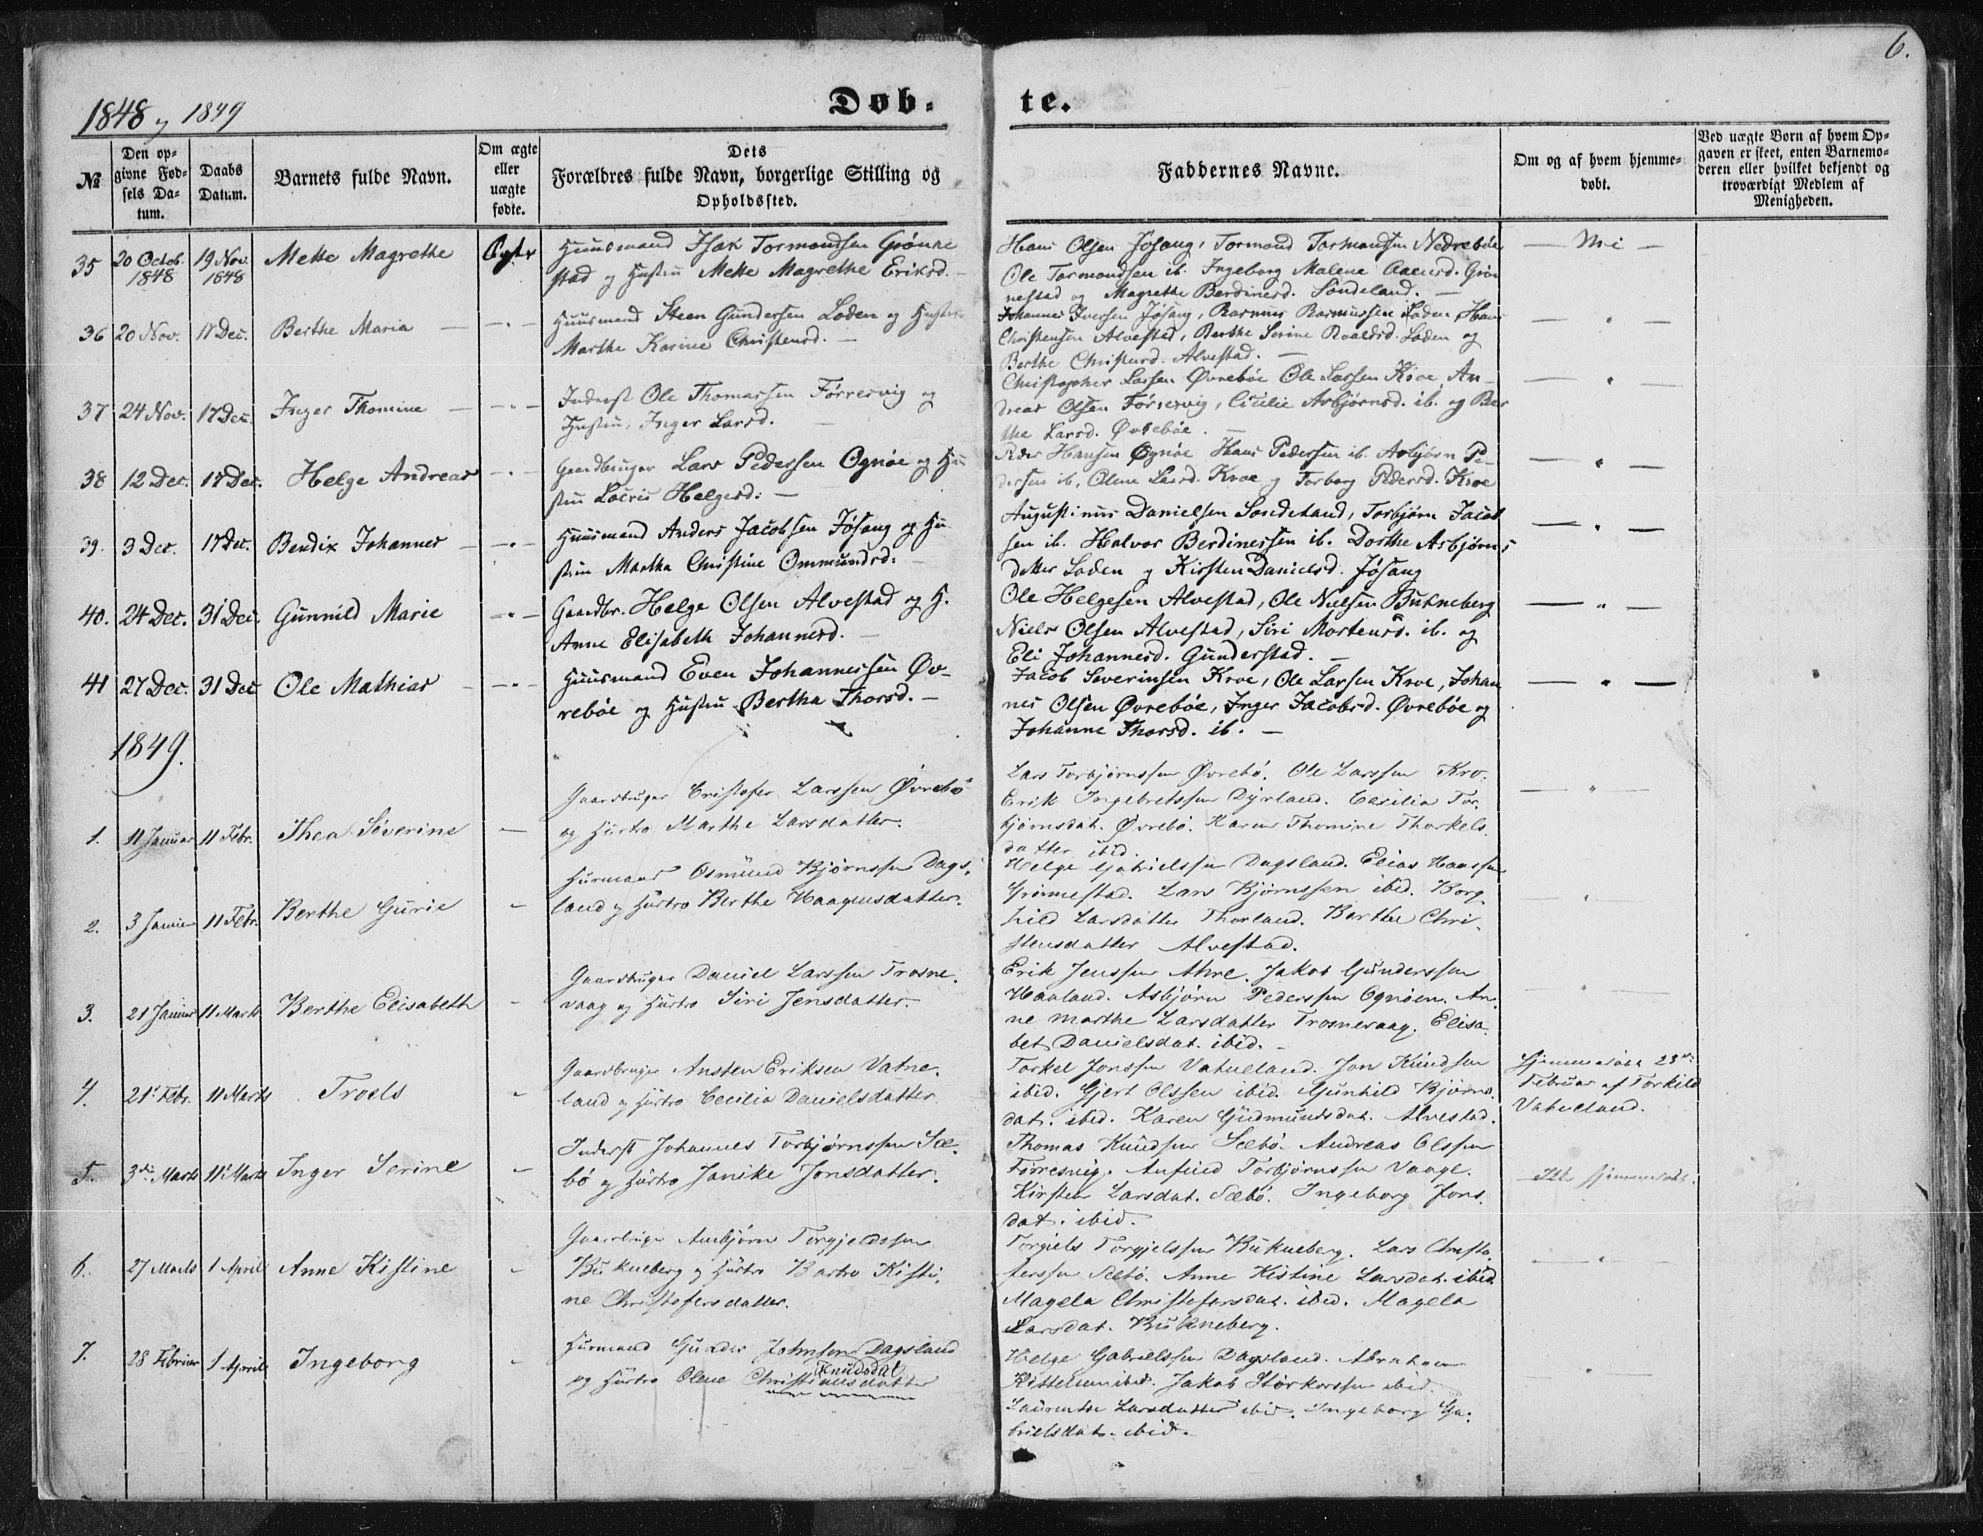 6.
1848 og 1849
Døb-
te.
№
Den op-
givne Fød-
sels Da-
tum.
Daabs
Datum.
Barnets fulde Navn.
Om ægte
eller
uægte
fødte.
Dets
Forældres fulde Navn, borgerlige Stilling og
Opholdssted.
Faddernes Navne.
Om og af hvem hjemme-
døbt.
Ved uægte Børn af hvem Op-
gaven er skeet, enten Barnemo-
deren eller hvilket bekjendt og
troværdigt Medlem af
Menigheden.
35 20 Octob. 1848 19 Nov. 1848 Mette Magrethe Ægte
Huusmand Isak Tormondsen Grønne
stad og Hustru Mette Magrethe Eriksd. —
Hans Olsen Jøsang, Tormond Tormondsen Nedrebøe
Ole Tormondsen ib. Ingeborg Malene Aanensd. Grøn
nestad og Magrethe Berdinesd. Søndeland. —
— Nei —
36 20 Nov. 17 Dec. Berthe Maria — — " —
Huusmand Steen Gundersen Loden og Hustru
Marthe Karine Christensd. —
Johannes Iversen Jøsang, Rasmus Rasmussen Loden, Hans
Christensen Alvestad, Berthe Serine Roaldsd. Loden og
Berthe Christensd. Alvestad. —
— " —
37 24 Nov. 17 Dec. Inger Thomine — — " —
Inderst Ole Thomassen Førresvig og
Hustru, Inger Larsd. —
Christopher Larsen Øvrebøe Ole Larsen Kroe, An-
dreas Olsen Førresvig, Cicilie Asbjørnsd. ib. og Ber
the Larsd. Øvrebøe. —
— " —
38 12 Dec. 17 Dec. Helge Andreas — " —
Gaardbruger Lars Pedersen Ognøe og Hu
stru Helgesd: —
Peder Hansen Ognøe Hans Pedersen ib. Asbjørn Pe-
dersen ib, Olene Larsd. Kroe og Torborg Pedersd. Kroe
— " —
39. 3 Dec. 17 Dec. Bendix Johannes — — " —
Huusmand Anders Jacobsen Jøsang og Hu
stru Martha Christine Ommundsd. —
Augustinus Danielsen Sondeland, Torbjørn Jacob
sen ib. Halvor Berdinessen ib. Dorthe Asbjørns
datter Loden og Kirsten Danielsd. Jøsang
— " —
40. 24 Dec. 31 Dec. Gunnild Marie — " —
Gaardbr. Helge Olsen Alvestad og H.
Anne Elisabeth Johannesd. —
Ole Helgesen Alvestad, Ole Nielsen Bukneberg
Niels Olsen Alvestad, Siri Mortensd. ib. og
Eli Johannesd. Gunderstad. —
— " —
41 27 Dec. 31 Dec Ole Mathias — — " —
Huusmand Even Johannessen Øv-
rebøe og Hustru Bertha Thorsd. —
Jacob Severinsen Kroe, Ole Larsen Kroe, Johan
nes Olsen Øvrebøe, Inger Jacobsd. Øvrebøe og
Johanne Thorsd. ib. —
— " —
1849.
1. 11 Januar 11 Febr. Thea Severine —
Gaardbruger Cristofer Larssen Øvrebö
og Hustro Marthe Larsdatter.
Lars Torbjørnssen Øvrebö. Ole Larssen Kro.
Erik Ingebretssen Dyrland. Cecilia Tor-
bjørnsdat. Øvrebö. Karen Thomine Thorkels-
datter ibid.
— " —
2. 3 Januar 11 Febr. Berthe Gurie —
Husmand Osmund Bjørnssen Dags-
land og Hustro Berthe Haagensdatter.
Helge Gabrielssen Dagsland. Elias Hanssen
Grönnestad. Lars Bjørnssen ibid. Borg-
hild Larsdatter Thorland. Berthe Chri-
stensdatter Alvestad.
— " —
3. 21 Januar 11 Marts Berthe Elisabeth —
Gaardbruger Daniel Larssen Trosne-
vaag og Hustro Siri Jensdatter.
Erik Jenssen Ahre. Jakob Gunderssen
Haaland. Asbjørn Pederssen Ognöen. An-
ne Marthe Larsdatter Trosnevaag. Elisa-
bet Danielsdat. ibid. —
— " —
4. 21 Febr. 11 Marts Troels —
Gaardbruger Ansten Eriksen Vatne-
land og Hustro Cecilia Danielsdatter
Torkel Jonssen Vatneland. Jon Knudsen
ibid. Gjert Olssen ibid. Gunhild Bjørns-
dat. ibid. Karen Gudmundsdat. Alvestad.
Hjemmedöbt 23de
Februar af Torkild
Vatneland.
5. 3die Marts 11 Marts Inger Serine —
Inderst Johannes Torbjørnssen Sæ-
bö og Hustro Janike Jonsdatter.
Thomas Knudsen Sæbö. Andreas Olssen
Førresvig. Anfind Torbjørnssen Vaage.
Kirsten Larsdat. Sæbö. Ingeborg Jons-
dat. ibid.
Ikke hjemmedöbt.
6. 27 Marts 1 April Anne Kistine —
Gaardbruger Asbjörn Torgjeldssen
Bukneberg og Hustro Kisti-
ne Christofersdatter.
Torgiels Torgjelssen Bukneberg. Lars Christo-
ferssen Sæbö. Anne Kistine Larsdat. ibid
Magela Christofersdat. ibid. Magela
Larsdat. Bukneberg.
— " —
7. 28 Februar 1 April Ingeborg —
Husmand Gunder Johnsen Dagsland
og Hustro Olene Christinesdatter
Knudsdat
Helge Gabrielssen Dagsland. Abraham
Kittelsen ibid. Jakob Storkorssen ibid.
Laurentse Larsdatter ibid. Ingeborg Ga-
brielsdat. ibid.
— " —